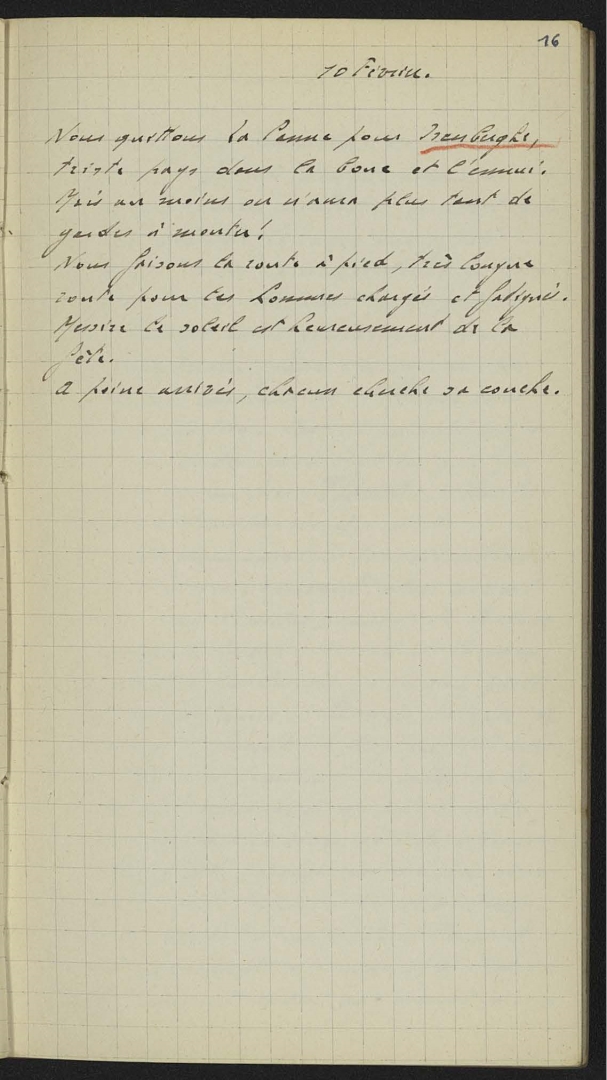 16
10 Février.
Nous quittons La Panne pour Isenberghe,
triste pays dans la boue et l'ennui.
Mais au moins on n'aura plus tant de
gardes à monter!
Nous faisons la route à pied, très longue
route pour les hommes chargés et fatigués.
Messire le soleil est heureusement de la
fête.
A peine arrivés, chacun cherche sa couche.